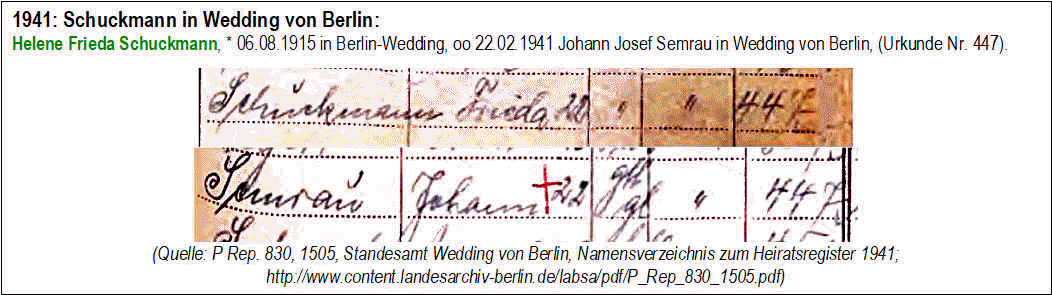 1941: Schuckmann in Wedding von Berlin:
Helene Frieda Schuckmann, * 06.08.1915 in Berlin-Wedding, oo 22.02.1941 Johann Josef Semrau in Wedding von Berlin, (Urkunde Nr. 447).
Schuckmann Frieda 22 " " 447
Semrau Johann 22 " 447
(Quelle: P Rep. 830, 1505, Standesamt Wedding von Berlin, Namensverzeichnis zum Heiratsregister 1941;
http://www.content.landesarchiv-berlin.de/labsa/pdf/P_Rep_830_1505.pdf)